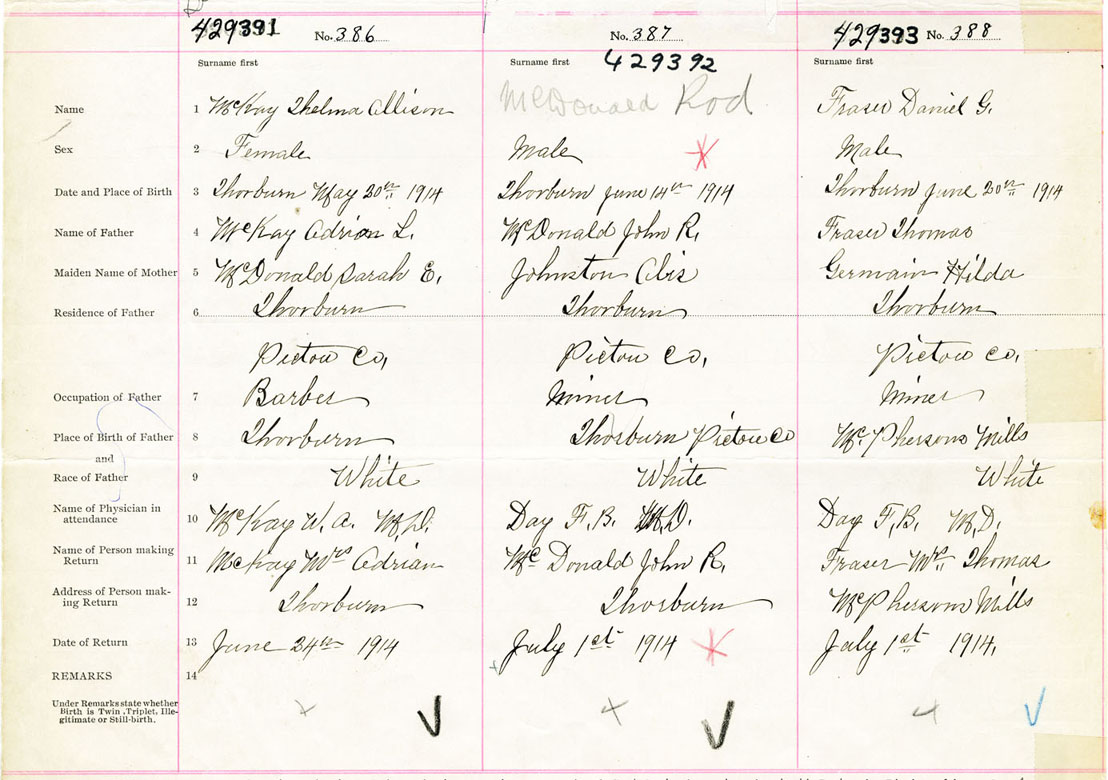 429391 No. 386 No. 387 429393 No. 388
Surname first Surname first 429392 Surname first
Name 1 McKay Thelma Allison McDonald Rod Fraser Daniel G.
Sex 2 Female Male Male
Date and Place of Birth 3 Thorburn May 20th 1914 Thorburn June 14th 1914 Thorburn June 20th 1914
Name of Father 4 McKay Adrian L. McDonald John R. Fraser Thomas
Maiden Name of Mother 5 McDonald Sarah E. Johnston Abis Germain Hilda
Residence of Father 6 Thorburn Thorburn Thorburn
Pictou Co, Pictou Co, Pictou Co.
Occupation of Father 7 Barber Miner Miner
Place of Birth of Father 8 Thorburn Thorburn Pictou Co McPhersons Mills
and
Race of Father 9 White White White
Name of Physician in
attendance 10 McKay W. A. M.D. Day F. B. M.D. Day F. B. M.D.
Name of Person making
Return 11 McKay Mrs Adrian McDonald John R. Fraser Mrs Thomas
Address of Person mak-
ing Return 12 Thorburn Thorburn McPhersons Mills
Date of Return 13 June 24th 1914 July 1st 1914 July 1st 1914.
REMARKS 14
Under Remarks state whether
Birth is Twin, Triplet, Ille-
gitimate or Still-birth.